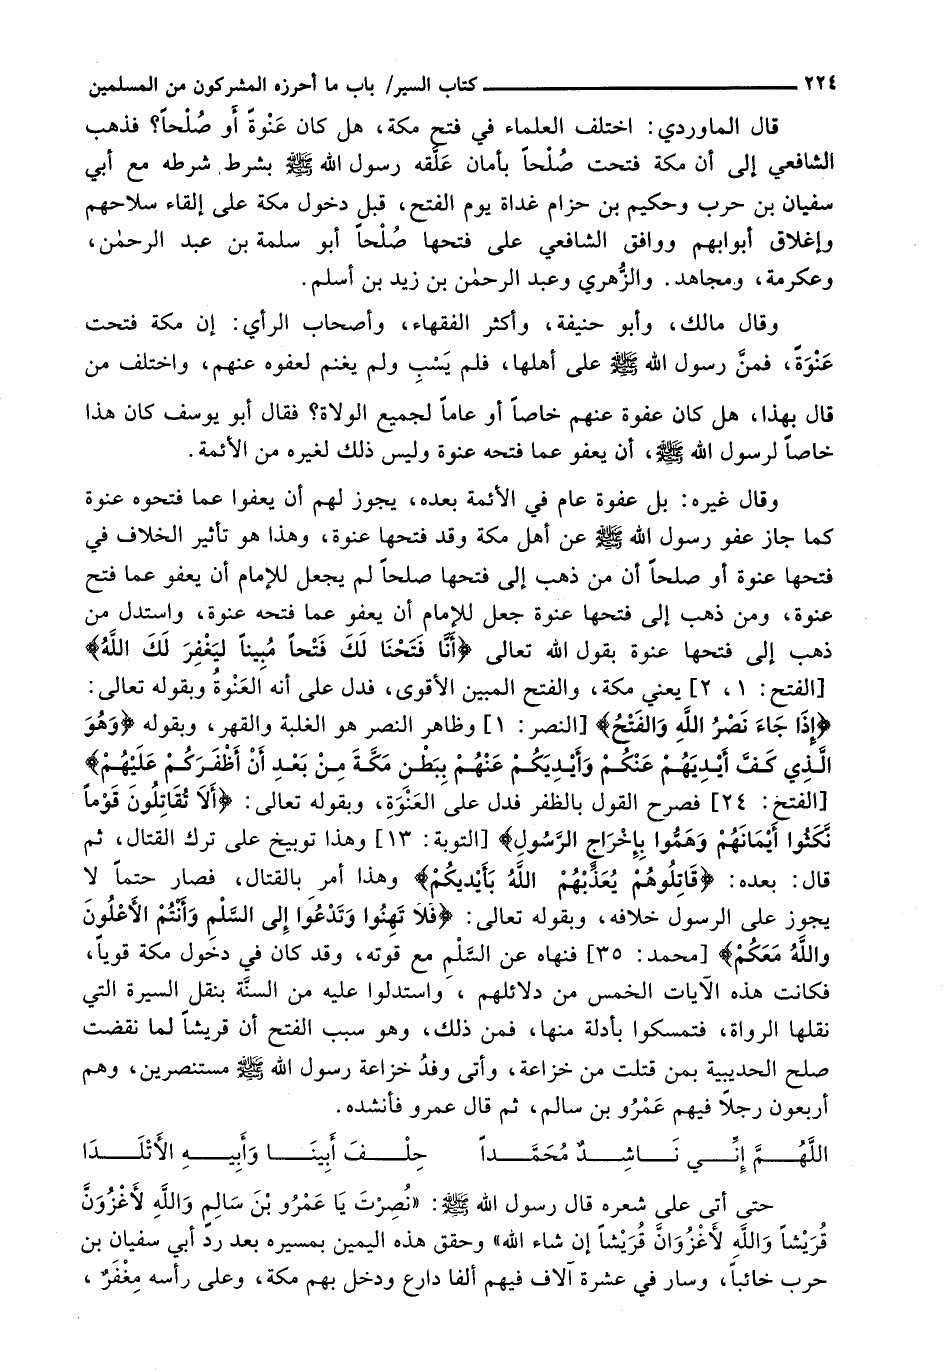 ٢٢٤ كتاب السير/ باب ما أحرزه المشركون من المسلمين
قال الماوردي: اختلف العلماء في فتح مكة، هل كان عَنْوةً أو صُلْحاً؟ فذهب
الشافعي إلى أن مكة فتحت صُلْحاً بأمان عَلَّقه رسول الله ﷺ بشرط شرطه مع أبي
سفيان بن حرب وحكيم بن حزام غداة يوم الفتح، قبل دخول مكة على إلقاء سلاحهم
وإغلاق أبوابهم ووافق الشافعي على فتحها صُلْحاً أبو سلمة بن عبد الرحمٰن،
وعكرمة، ومجاهد. والزُّهري وعبد الرحمٰن بن زيد بن أسلم.
وقال مالك، وأبو حنيفة، وأكثر الفقهاء، وأصحاب الرأي: إن مكة فتحت
عَنْوَةً، فمنَّ رسول الله ﷺ على أهلها، فلم يَسْبِ ولم يغنم لعفوه عنهم، واختلف من
قال بهذا، هل كان عفوة عنهم خاصاً أو عاماً لجميع الولاة؟ فقال أبو يوسف كان هذا
خاصاً لرسول الله ﷺ، أن يعفو عما فتحه عنوة وليس ذلك لغيره من الأئمة.
وقال غيره: بل عفوة عام في الأئمة بعده، يجوز لهم أن يعفوا عما فتحوه عنوة
كما جاز عفو رسول الله ﷺ عن أهل مكة وقد فتحها عنوة، وهذا هو تأثير الخلاف في
فتحها عنوة أو صلحاً أن من ذهب إلى فتحها صلحاً لم يجعل للإمام أن يعفو عما فتح
عنوة، ومن ذهب إلى فتحها عنوة جعل للإمام أن يعفو عما فتحه عنوة، واستدل من
ذهب إلى فتحها عنوة بقول الله تعالى ﴿أَنَّا فَتَحْنَا لَكَ فَتْحاً مُبِيناً لِيَغْفِرَ لَكَ اللَّهُ﴾
[الفتح: ١، ٢] يعني مكة، والفتح المبين الأقوى، فدل على أنه العَنْوةُ وبقوله تعالى:
﴿إِذَا جَاءَ نَصْرُ اللَّهِ وَالفَتْحُ﴾ [النصر: ١] وظاهر النصر هو الغلبة والقهر، وبقوله ﴿وَهُوَ
الَّذِي كَفَّ أَيْدِيَهُمْ عَنْكُمْ وَأَيْدِيَكُمْ عَنْهُمْ بِبَطْنِ مَكَّةَ مِنْ بَعْدِ أَنْ أَظْفَرَكُمْ عَلَيْهِمْ﴾
[الفتح: ٢٤] فصرح القول بالظفر فدل على العَنْوَةِ، وبقوله تعالى: ﴿أَلَا تُقَاتِلُونَ قَوْماً
نَكَثُوا أَيْمَانَهُمْ وَهَمُّوا بِإِخْرَاجِ الرَّسُولِ﴾ [التوبة: ١٣] وهذا توبيخ على ترك القتال، ثم
قال: بعده: ﴿قَاتِلُوهُمْ يُعَذِّبْهُمْ اللَّهُ بَأَيْديكُمْ﴾ وهذا أمر بالقتال، فصار حتماً لا
يجوز على الرسول خلافه، وبقوله تعالى: ﴿فَلَا تَهِنُوا وَتَدْعُوا إِلى السَّلْمِ وَأَنْتُمْ الأَعْلُونَ
واللَّهُ مَعَكُمْ﴾ [محمد: ٣٥] فنهاه عن السَّلْمِ مع قوته، وقد كان في دخول مكة قوياً،
فكانت هذه الآيات الخمس من دلائلهم ، واستدلوا عليه من السنَّة بنقل السيرة التي
نقلها الرواة، فتمسكوا بأدلة منها، فمن ذلك، وهو سبب الفتح أن قريشاً لما نقضت
صلح الحديبية بمن قتلت من خزاعة، وأتى وفدُ خزاعة رسول الله ﷺ مستنصرين، وهم
أربعون رجلاً فيهم عَمْرُو بن سالم، ثم قال عمرو فأنشده.
اللَّهُمَّ إِنِّي نَاشِدٌ مُحَمَّداً حِلْفَ أَبِينَا وَأَبِيهِ الأَتْلَدَا
حتى أتى على شعره قال رسول الله ﷺ: «نُصِرْتَ يَا عَمْرُو بْنَ سَالِمٍ وَاللَّهِ لَأَغْزُوَنَّ
قُرَيْشاً وَاللَّهِ لَأَغْزُوَانَّ قُرَيْشاً إن شاء الله» وحقق هذه اليمين بمسيره بعد ردّ أبي سفيان بن
حرب خائباً، وسار في عشرة آلاف فيهم ألفا دارع ودخل بهم مكة، وعلى رأسه مِغْفَرٌ ،